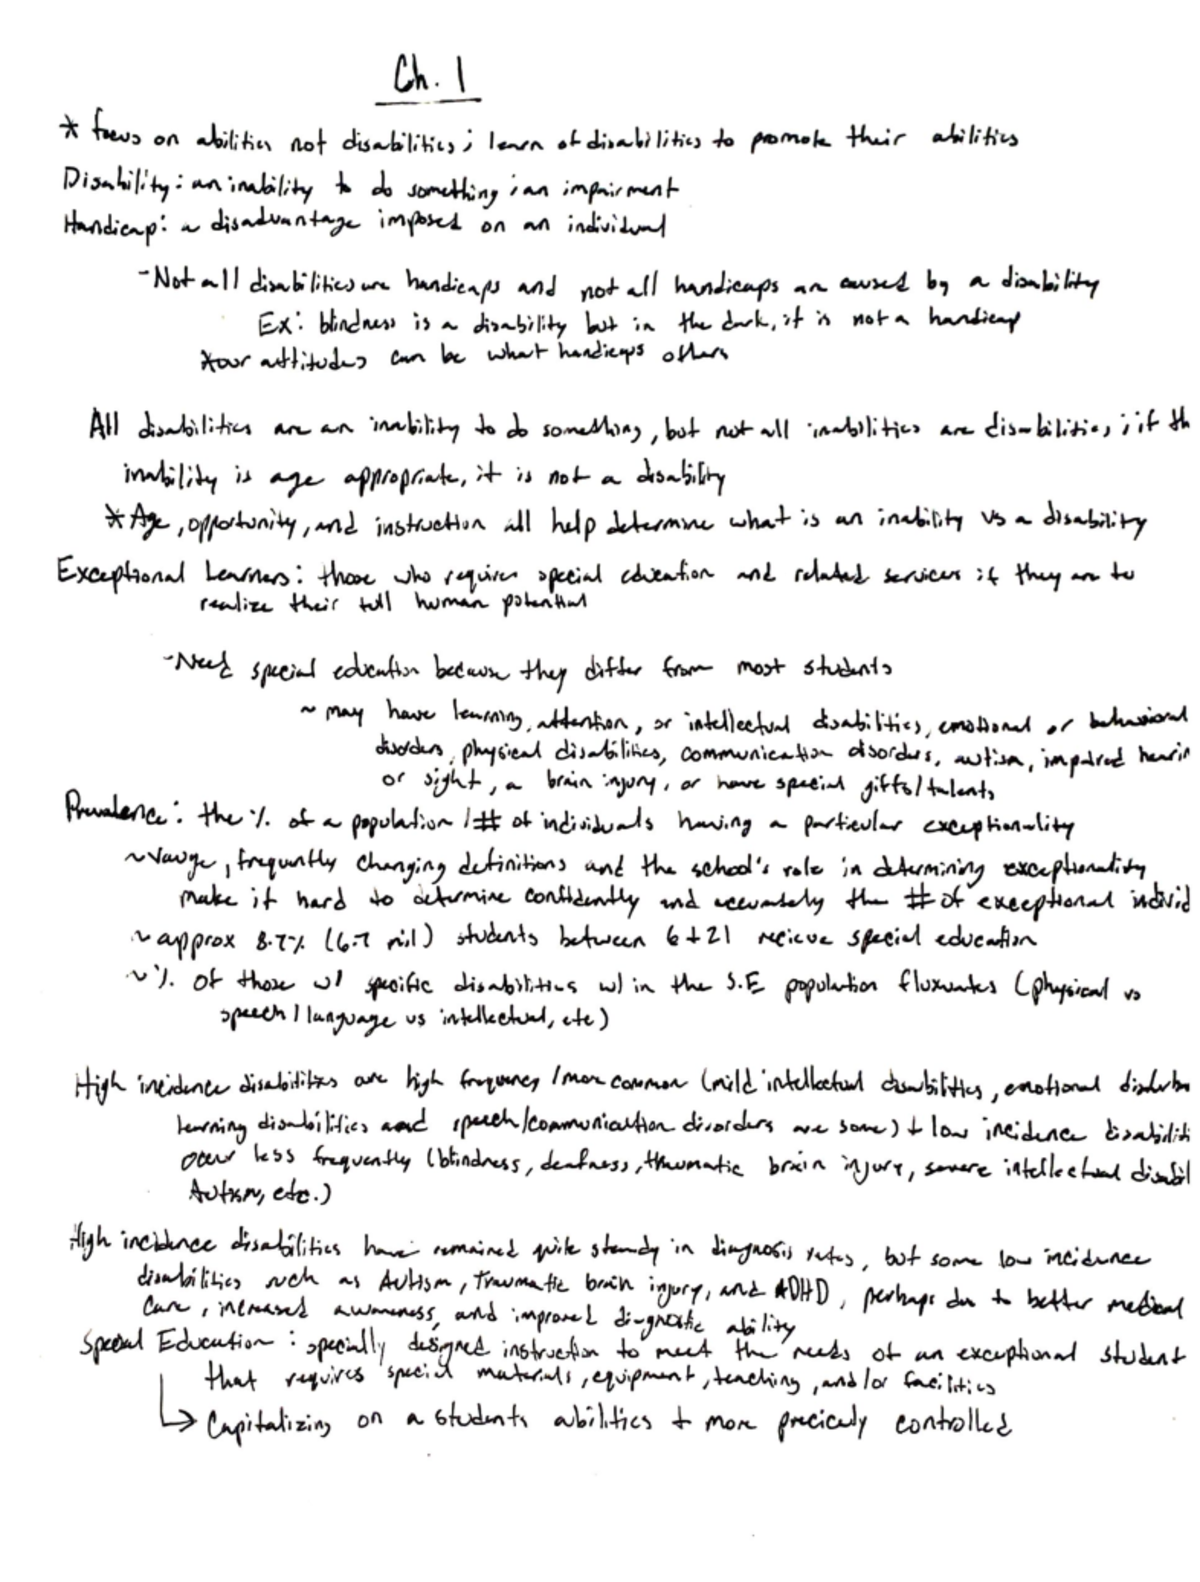 Ch. 1
* focus on abilities not disabilities; learn of disabilities to promote their abilities
Disability: an inability to do something; an impairment
Handicap: a disadvantage imposed on an individual
-Not all disabilities are handicaps and not all handicaps are caused by a disability
Ex: blindness is a disability but in the dark, it is not a handicap
*our attitudes can be what handicaps others
All disabilities are an inability to do something, but not all inabilities are disabilities; if th
inability is age appropriate, it is not a disability
*Age, opportunity, and instruction all help determine what is an inability vs a disability
Exceptional Learners: those who require special education and related services if they are to
realize their full human potential
-Need special education because they differ from most students
~ may have learning, attention, or intellectual disabilities, emotional or behavioral
disorders, physical disabilities, communication disorders, autism, impaired hearin
or sight, a brain injury, or have special gifts/talents
Prevalence: the % of a population / # of individuals having a particular exceptionality
~Vauge, frequently changing definitions and the school's role in determining exceptionality
make it hard to determine confidently and accurately the # of exceptional individ
~ approx 8.7% (6.7 mil) students between 6 + 21 recieve special education
~ % of those w/ specific disabilities w/in the S.E population fluxuates (physical vs
speech/language vs intellectual, etc)
High incidence disabilities are high frequency/more common (mild intellectual disabilities, emotional disturba
learning disabilities and speech/communication disorders are some) + low incidence disabiliti
occur less frequently (blindness, deafness, traumatic brain injury, severe intellectual disabil
Autism, etc.)
High incidence disabilities have remained quite steady in diagnosis rates, but some low incidence
disabilities such as Autism, traumatic brain injury, and ADHD, perhaps due to better medical
care, increased awareness, and improved diagnostic ability
Special Education: specially designed instruction to meet the needs of an exceptional student
that requires special materials, equipment, teaching, and/or facilities
↳ Capitalizing on a students abilities + more precicely controlled